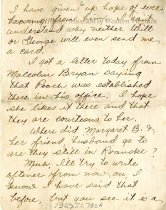 I have given up hope of ever
hearing from
understand why neither Will
or George will even send me
a card.
I got a letter today from
Malcolm Bryan saying
that Pearl was established
there in his office. I hope
she likes it there and that
they are courteous to her.
When did Margaret B. &
her friend husband go to
are they still in Roanoke
Mus, I'll try to write
oftener from now on. I
know I have said that
before, but you see it is a